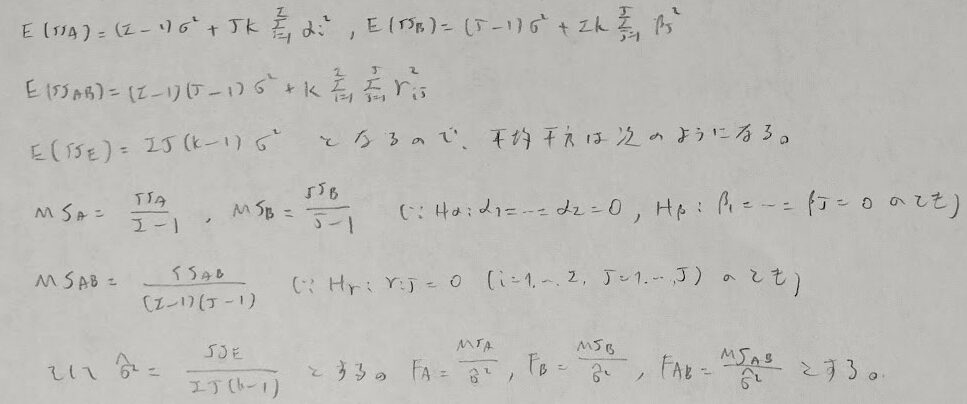 E(SSA) = (I-1)σ² + JK Σ_{i=1}^{I} αi², E(SSB) = (J-1)σ² + IK Σ_{j=1}^{J} βj²
E(SSAB) = (I-1)(J-1)σ² + K Σ_{i=1}^{I} Σ_{j=1}^{J} γij²
E(SSE) = IJ(K-1)σ² となるので、平均平方は次のようになる。
MSA = SSA/(I-1), MSB = SSB/(J-1) (∵ Hα: α1=…=αI=0, Hβ: β1=…=βJ=0 のとき)
MSAB = SSAB/((I-1)(J-1)) (∵ Hγ: γij=0 (i=1,…,I, J=1,…,J) のとき)
そして σ̂² = SSE/(IJ(K-1)) とする。 FA = MSA/σ̂², FB = MSB/σ̂², FAB = MSAB/σ̂² とする。